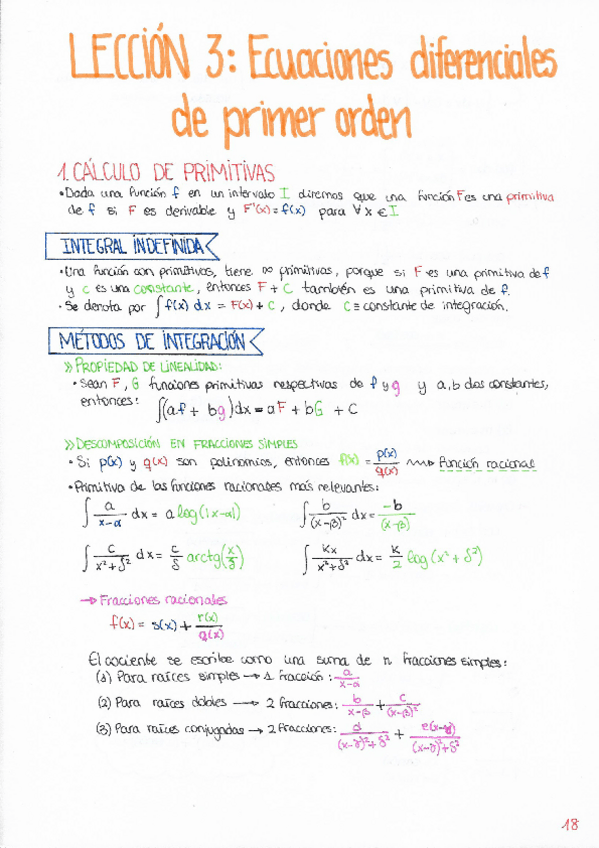 LECCIÓN 3: Ecuaciones diferenciales
de primer orden
1. CÁLCULO DE PRIMITIVAS
• Dada una función f en un intervalo I diremos que una función F es una primitiva
de f si F es derivable y F'(x) = f(x) para ∀x ∈ I
INTEGRAL INDEFINIDA
• Una función con primitivas, tiene ∞ primitivas, porque si F es una primitiva de f
y C es una constante, entonces F + C también es una primitiva de f.
• Se denota por ∫ f(x) dx = F(x) + C, donde C ≡ constante de integración.
MÉTODOS DE INTEGRACIÓN
» PROPIEDAD DE LINEALIDAD:
• Sean F, G funciones primitivas respectivas de f y g y a, b dos constantes,
entonces: ∫(af + bg)dx = aF + bG + C
» DESCOMPOSICIÓN EN FRACCIONES SIMPLES
• Si p(x) y q(x) son polinomios, entonces f(x) = p(x)/q(x) ⟿ función racional
• Primitiva de las funciones racionales más relevantes:
∫ a/(x-α) dx = a log(|x-α|) ∫ b/(x-β)² dx = -b/(x-β)
∫ c/(x²+δ²) dx = c/δ arctg(x/δ) ∫ Kx/(x²+δ²) dx = K/2 log(x²+δ²)
→ Fracciones racionales
f(x) = s(x) + r(x)/q(x)
El cociente se escribe como una suma de n fracciones simples:
(1) Para raíces simples → 1 fracción: a/(x-α)
(2) Para raíces dobles → 2 fracciones: b/(x-β) + c/(x-β)²
(3) Para raíces conjugadas → 2 fracciones: d/((x-γ)²+δ²) + e(x-γ)/((x-γ)²+δ²)
18